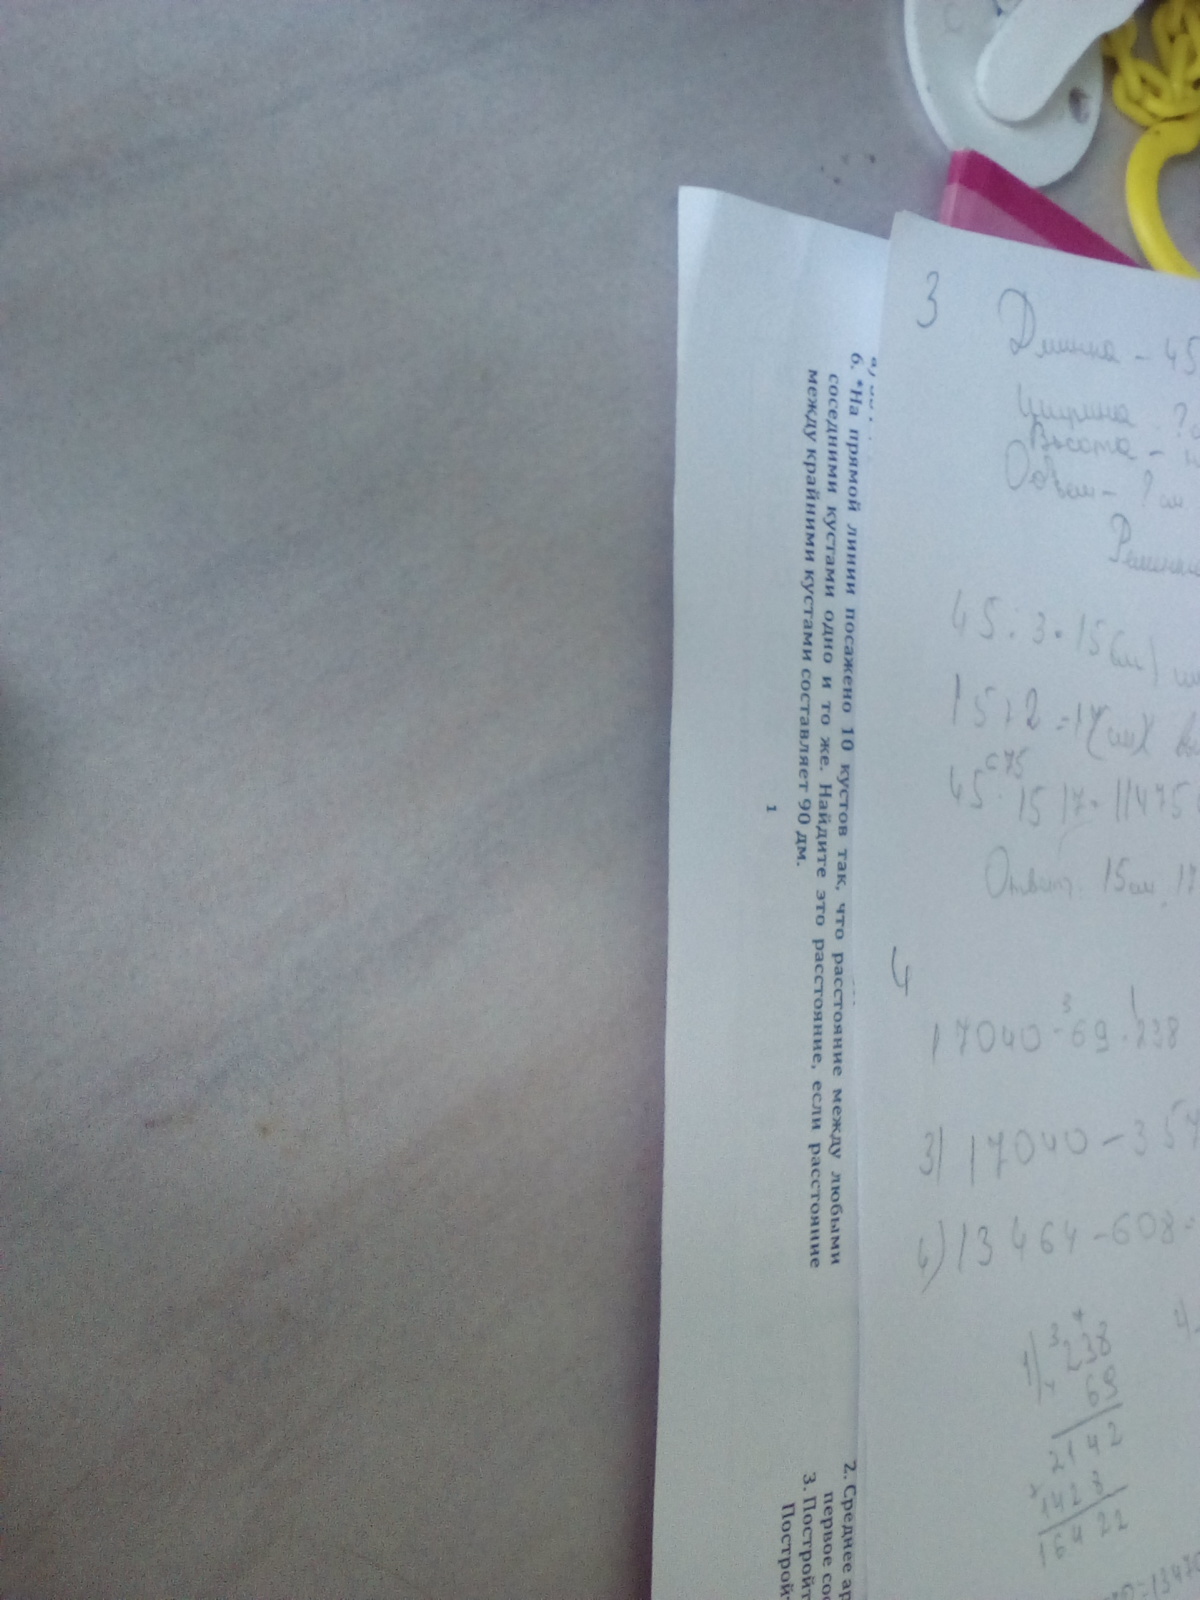 6. *На прямой линии посажено 10 кустов так, что расстояние между любыми
соседними кустами одно и то же. Найдите это расстояние, если расстояние
между крайними кустами составляет 90 дм.
1
2. Среднее ар
первое соо
3. Постройт
Построй
3
Длинна - 45
Ширина ?
Высота -
Объем - ? см
45:3=15(см)
15+2=17(см)
675
45·15·17=11475
Ответ. 15см, 17
4
3 1
17040-69·238
3) 17040-357
13464-608
1) 238
69
2142
1428
16422